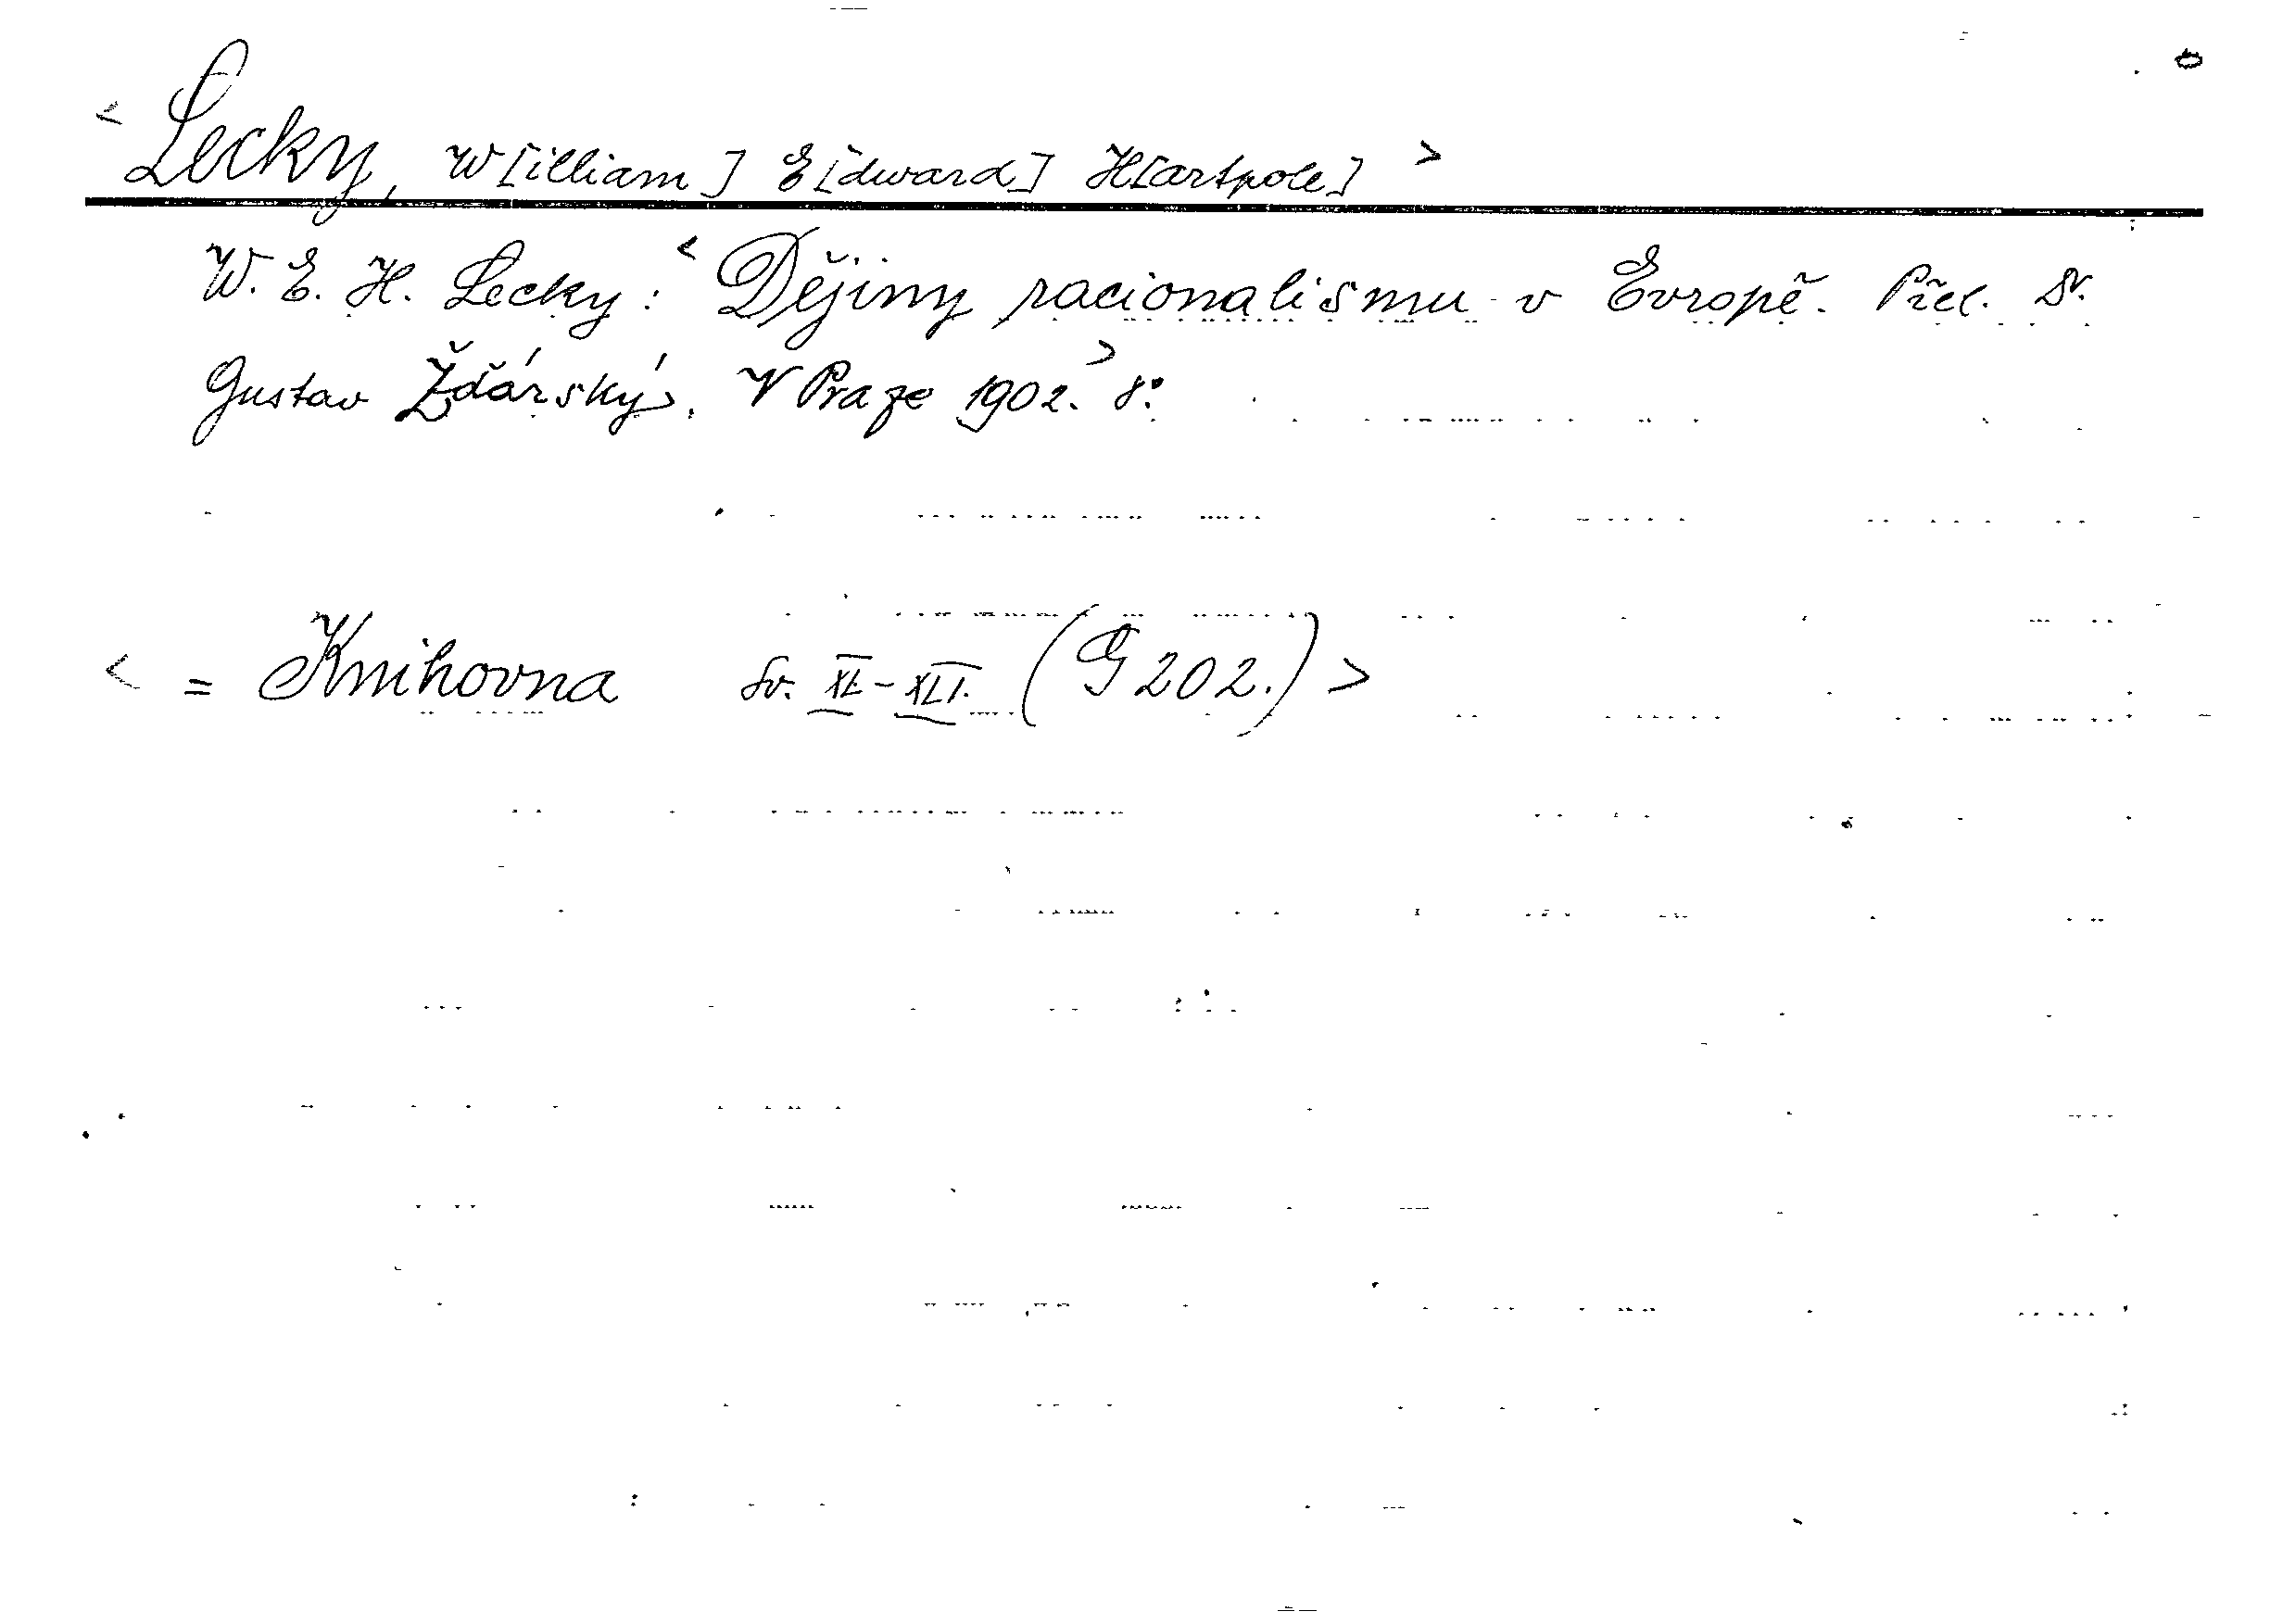 < Lecky, W[illiam] E[dward] H[artpole] >
W. E. H. Lecky: < Dějiny racionalismu v Evropě. Přel. Dr.
Gustav Žďárský. V Praze 1902. > 8°.
< = Knihovna sv. XL - XLI. (G 202.) >